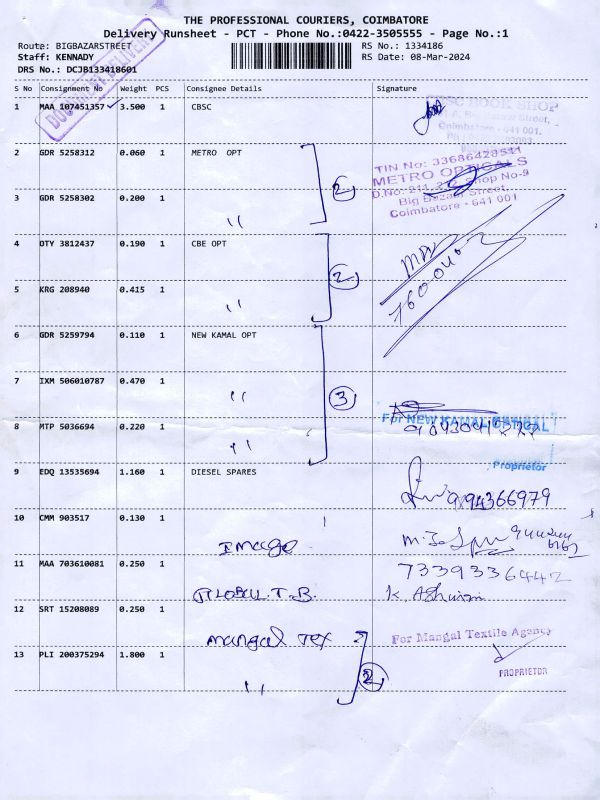 THE PROFESSIONAL COURIERS, COIMBATORE
Delivery Runsheet - PCT - Phone No.:0422-3505555 - Page No.:1
Route: BIGBAZARSTREET RS No.: 1334186
Staff: KENNADY RS Date: 08-Mar-2024
DRS No.: DCJB133418601
S No Consignment No Weight PCS Consignee Details Signature
1 MAA 107451357 3.500 1 CBSC
BOOK SHOP
Coimbatore - 641 001.
2 GDR 5258312 0.060 1 METRO OPT 2
TIN No: 33686428511
METRO OPTICALS
D.No: 211, 212, Shop No-9
Big Bazaar Street,
Coimbatore - 641 001
3 GDR 5258302 0.200 1 "
4 DTY 3812437 0.190 1 CBE OPT 2
5 KRG 208940 0.415 1 "
6 GDR 5259794 0.110 1 NEW KAMAL OPT
7 IXM 506010787 0.470 1 " 3
8 MTP 5036694 0.220 1 "
For NEW KAMAL OPTICAL
Proprietor
9 EDQ 13535694 1.160 1 DIESEL SPARES
10 CMM 903517 0.130 1 Image
11 MAA 703610081 0.250 1 GLOBUL. T.B.
7339336442
K. Ashwini
12 SRT 15208089 0.250 1 Mangal Tex
For Mangal Textile Agency
PROPRIETOR
13 PLI 200375294 1.800 1 " 2